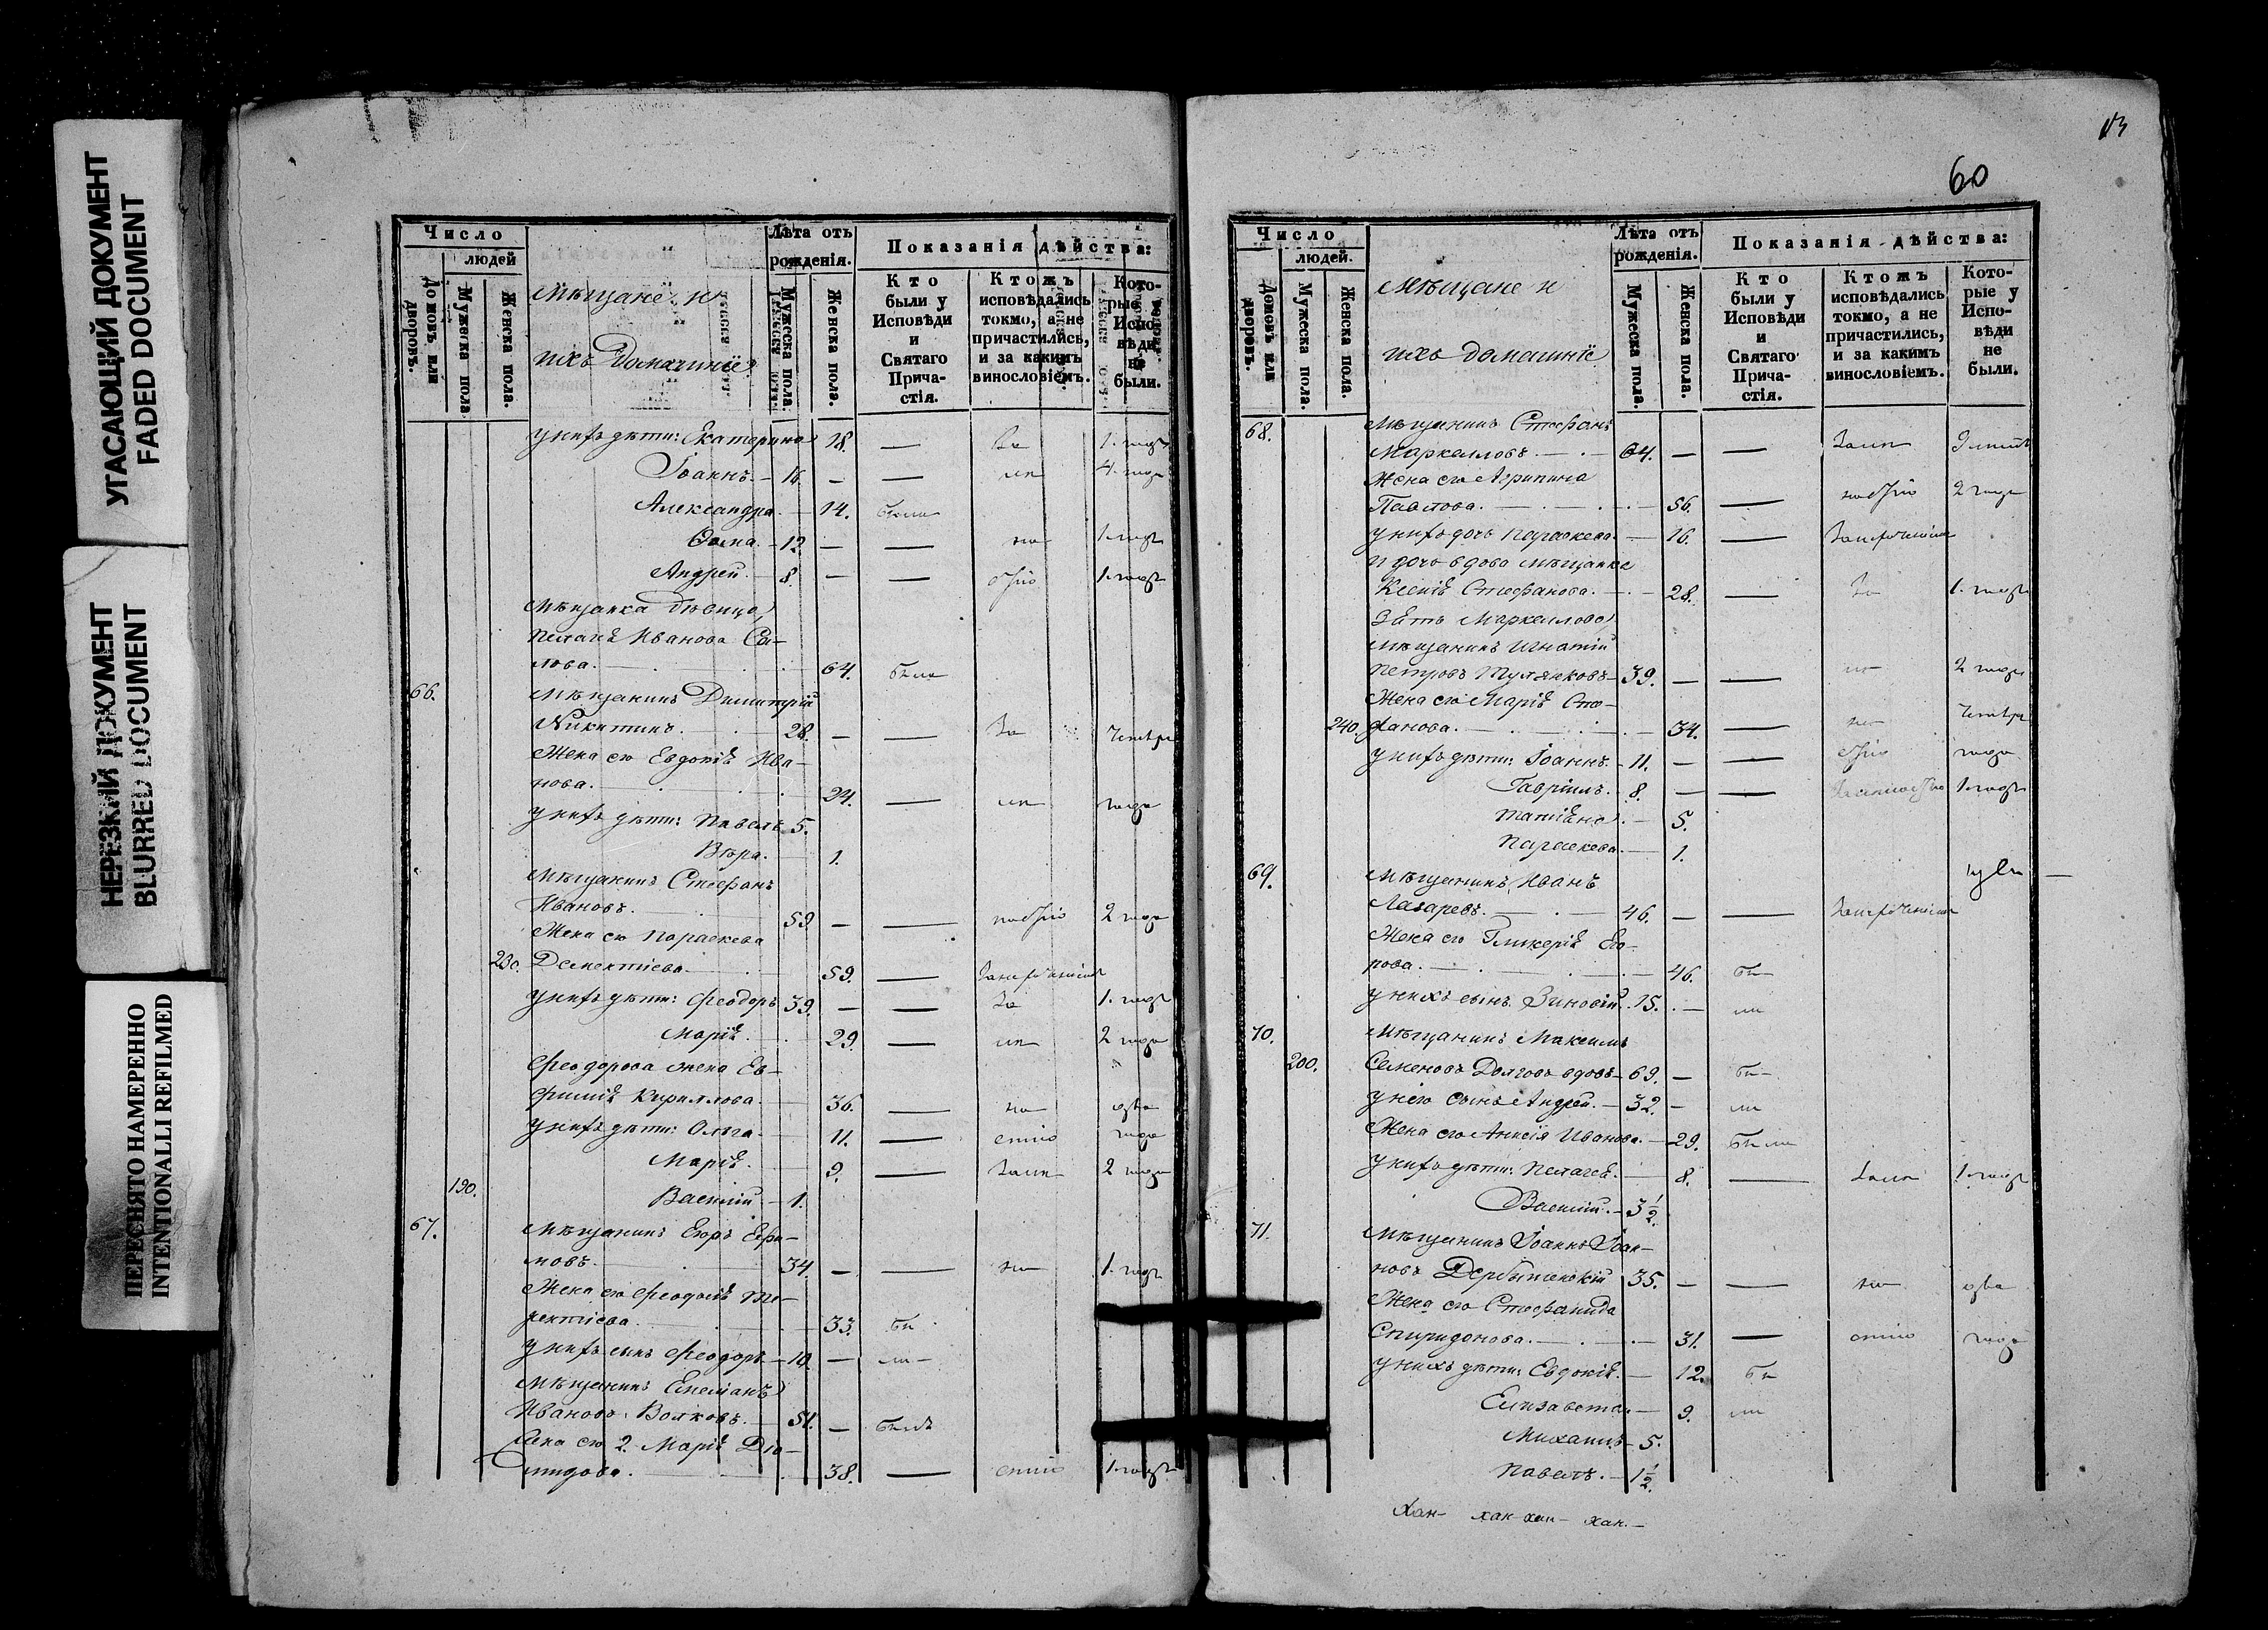 УГАСАЮЩИЙ ДОКУМЕНТ
FADED DOCUMENT
НЕРЕЗКИЙ ДОКУМЕНТ
BLURRED DOCUMENT
ПЕРЕСНЯТО НАМЕРЕННО
INTENTIONALLI REFILMED
Число
людей
Домовъ или дворовъ.
Мужеска пола
Женска пола.
Мѣщане и
ихъ Домашніе
Лѣта отъ рожденія.
Мужеска пола.
Женска пола.
Показанія дѣйства:
Кто были у Исповѣди и Святаго Прича-стія.
Ктожъ исповѣдались токмо, а не причастились, и за какимъ винословіемъ.
Кото-рые у Испо-вѣди не были.
у нихъ дѣти: Екатерина 18. — 1. годъ
Іоаннъ. — 16 — — 4. года
Александра. — 14. была
Ѳома. — 12 — — 1. годъ
Андрей. — 8. — — 1. годъ
Мѣщанка дѣвица
Пелагея Иванова Са-
лова. 64. была
66. Мѣщанинъ Димитрій
Никитинъ. 28. — —
Жена его Евдокія Ива-
нова. 24. — года
у нихъ дѣти: Павелъ 5.
Вѣра. 1.
Мѣщанинъ Стефанъ
Ивановъ. 59 — — 2 года
Жена его Параскева
230. Дементіева. 59. —
у нихъ дѣти: Феодоръ 39. — — За 1. годъ
Марія. 29. — 2 года
Феодорова жена Ев-
фимія Кириллова. 36. — два
у нихъ дѣти: Ольга. 11. — года
Марія. 9. — 2 года
190. Василій. — 1.
67. Мѣщанинъ Егоръ Ефи-
мовъ. 34. — — 1. годъ
Жена его Феодосія Те-
рентіева. 33. бы
у нихъ сынъ Феодоръ — 10. — ли —
Мѣщанинъ Емеліанъ
Ивановъ Волковъ. 51. — былъ
Жена его 2. Марія Діо-
мидова. 38. — 1. годъ
13
60
Число
людей.
Домовъ или дворовъ.
Мужеска пола.
Женска пола.
Мѣщане и
ихъ домашніе
Лѣта отъ рожденія.
Мужеска пола.
Женска пола.
Показанія дѣйства:
Кто были у Исповѣди и Святаго Прича-стія.
Ктожъ исповѣдались токмо, а не причастились, и за какимъ винословіемъ.
Кото-рые у Испо-вѣди не были.
68. Мѣщанинъ Стефанъ
Маркелловъ. — 64. — —
Жена его Агрипина
Павлова. — 56. — 2 года
у нихъ дочь Параскева. — 16. —
и дочь вдова мѣщанка
Ксенія Стефанова. — 28. — За 1. годъ
Зять Маркелловъ
мѣщанинъ Игнатій
Петровъ Туляковъ — 39. — — 2 года
Жена его Марія Сте-
240. фанова. — 34. —
у нихъ дѣти: Іоаннъ. — 11. — — года
Гавріилъ. — 8. — — 1 годъ
Татіана. — 5.
Параскева. — 1.
69. Мѣщанинъ Иванъ
Лазаревъ. — 46. — —
Жена его Гликерія Его-
рова. — 46. бы —
у нихъ сынъ Зиновій. 15. — ли
70. Мѣщанинъ Максимъ
200. Семеновъ Долговъ вдовъ — 69. — бы —
у него сынъ Андрей. — 32. — ли
Жена его Анисія Иванова. — 29. была
у нихъ дѣти: Пелагея. — 8. — 1. годъ
Василій. — 3 1/2.
71. Мѣщанинъ Іоаннъ Іоан-
новъ 35. — — два
Жена его Стефанида
Спиридонова. — 31. — года
у нихъ дѣти: Евдокія. — 12. бы
Елизавета. — 9. ли
Михаилъ — 5.
Павелъ. — 1 1/2.